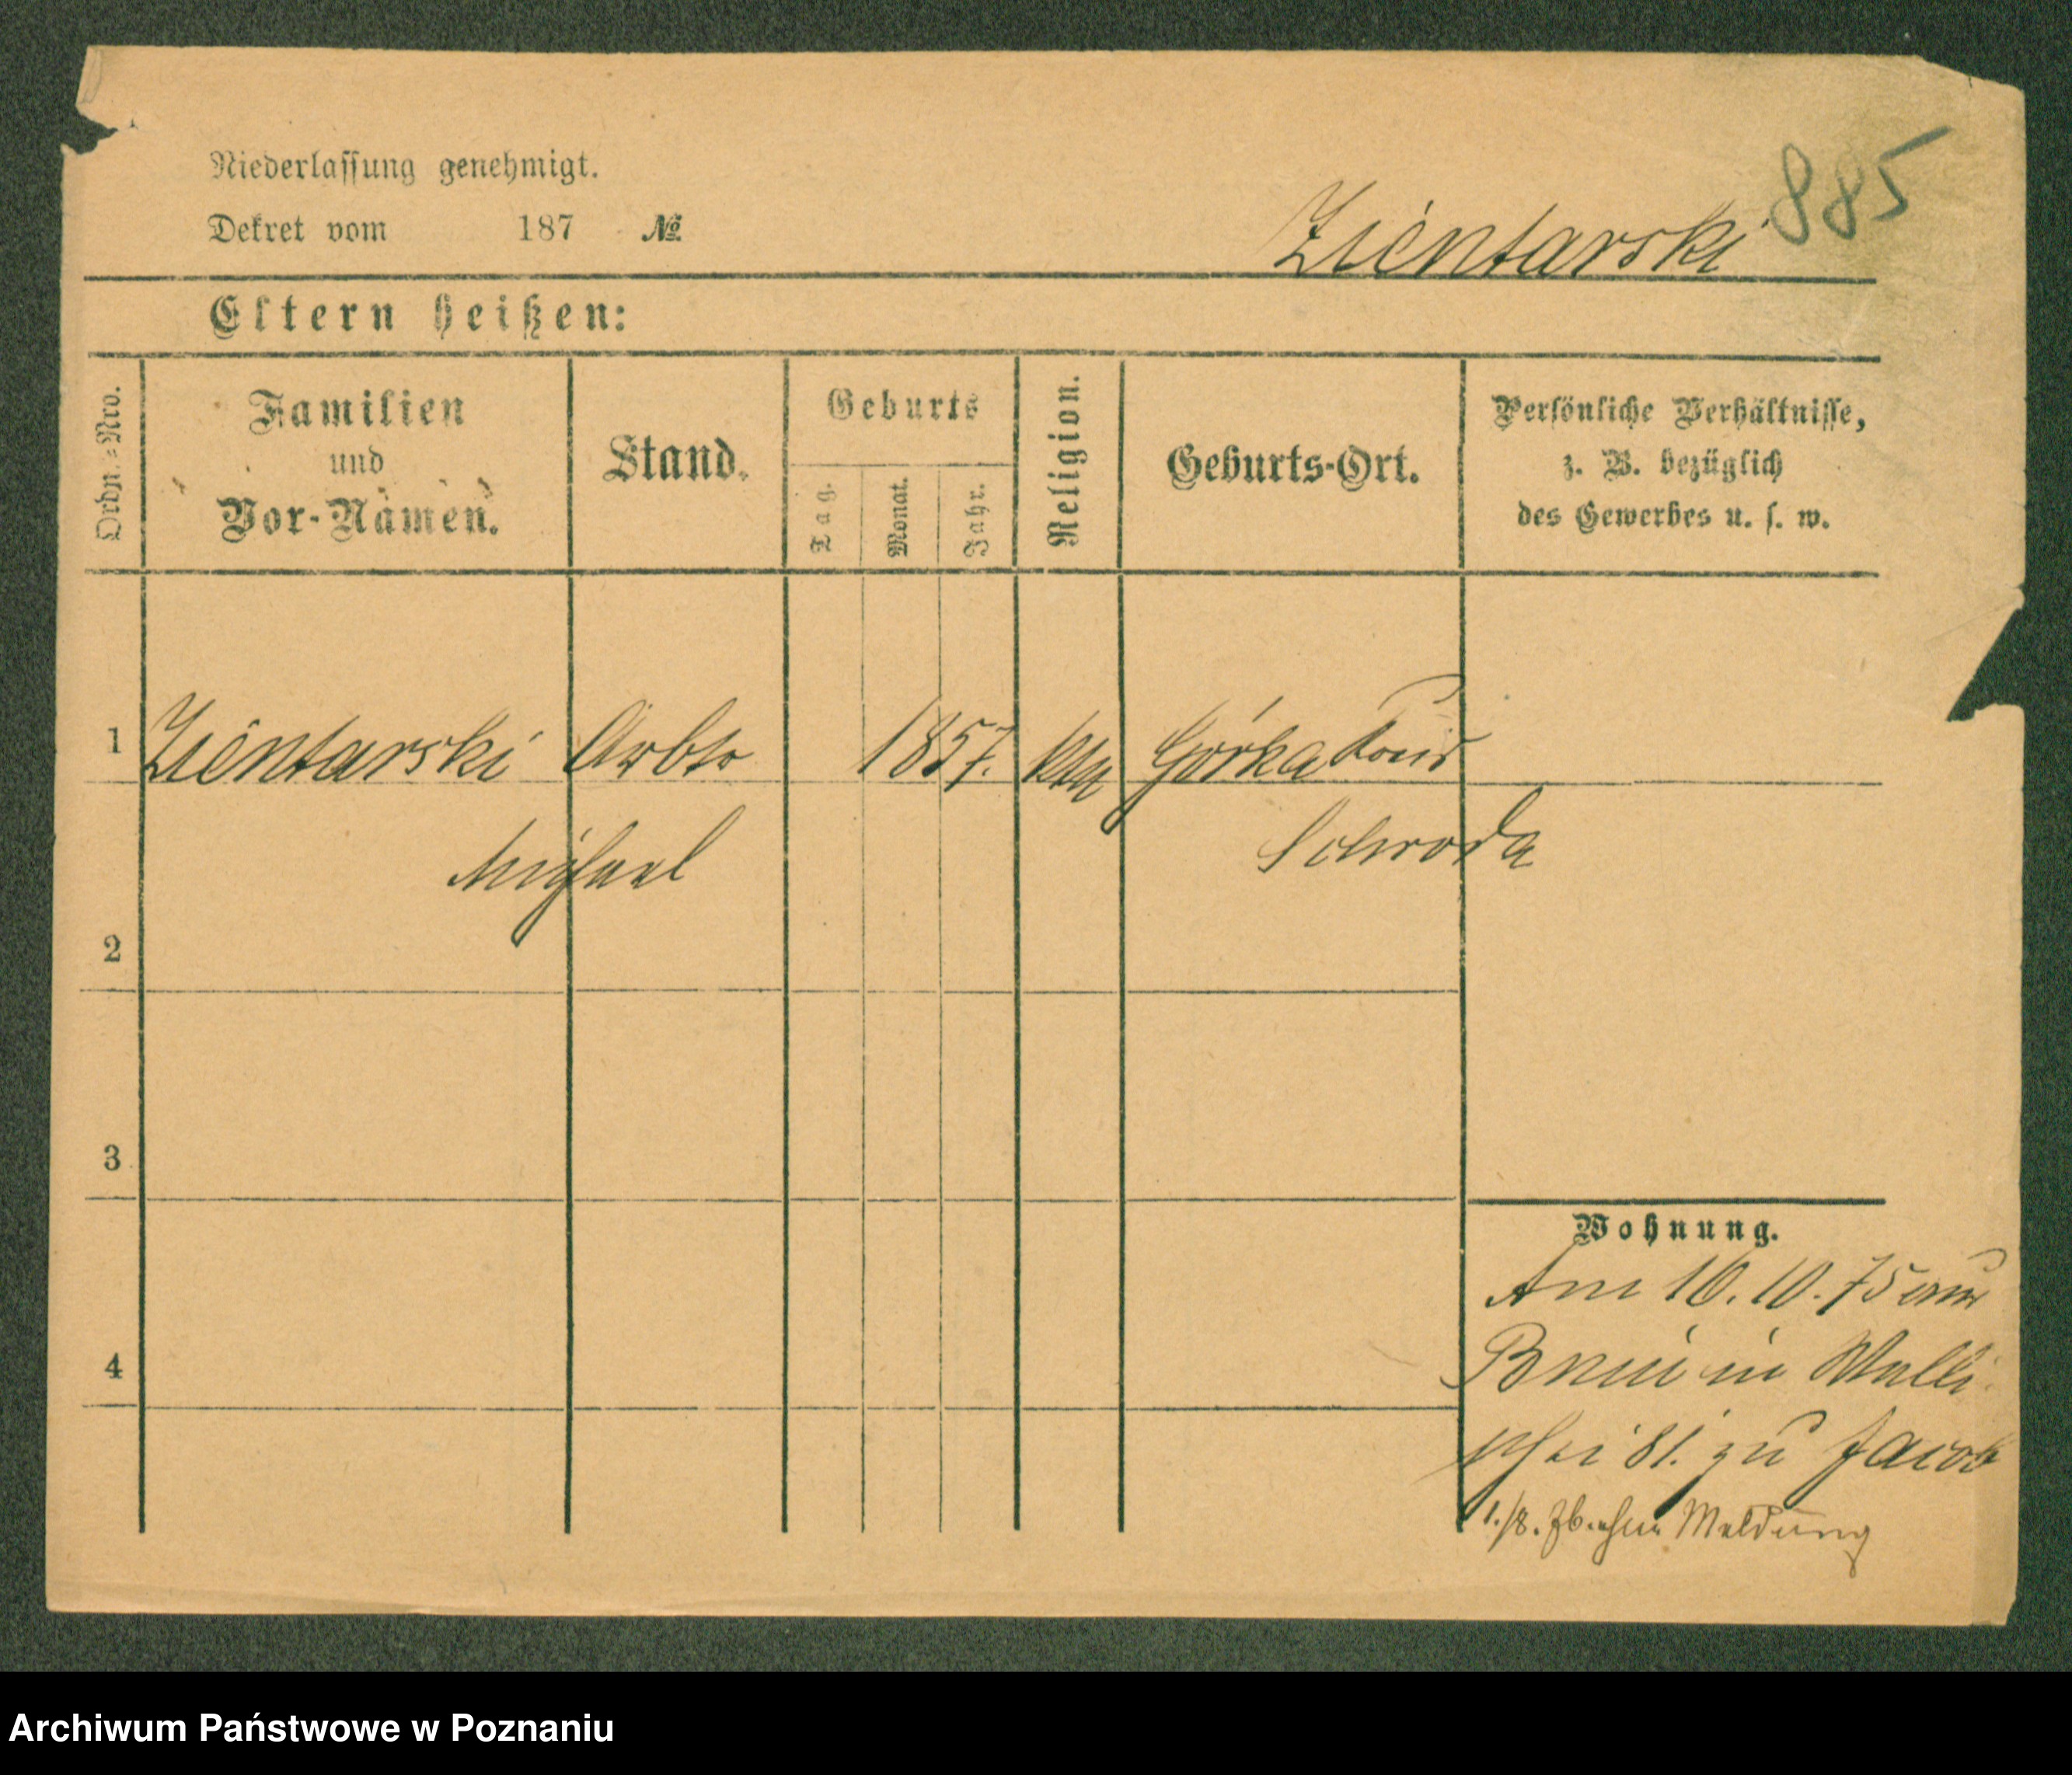 885
Niederlassung genehmigt.
Dekret vom 187 №
Zientarski
Eltern heißen:
Ordn.=Nro.
Familien
und
Vor-Namen.
Stand.
Geburts
Tag.
Monat.
Jahr.
Religion.
Geburts-Ort.
Persönliche Verhältnisse,
z. B. bezüglich
des Gewerbes u. s. w.
1 Zientarski Arbtr 1857. kth Gorka Kreis
Michael Schroda
2
3
4
Wohnung.
Am 16. 10. 75 aus
Bnin in Walli
schei 81. zu Jacob
1./8. 76. ohne Meldung
Archiwum Państwowe w Poznaniu